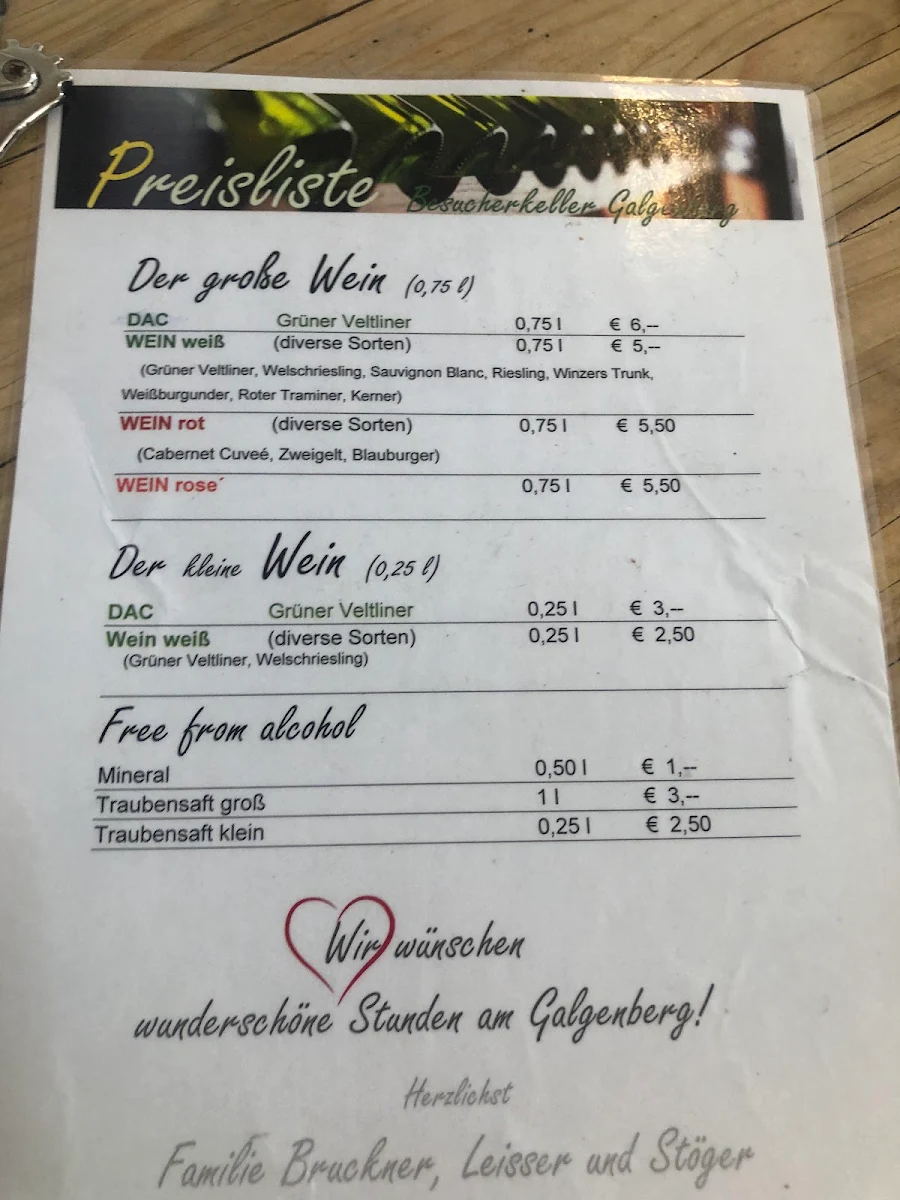 Preisliste Besucherkeller Galgenberg
Der große Wein (0,75 l)
DAC Grüner Veltliner 0,75 l € 6,--
WEIN weiß (diverse Sorten) 0,75 l € 5,--
(Grüner Veltliner, Welschriesling, Sauvignon Blanc, Riesling, Winzers Trunk,
Weißburgunder, Roter Traminer, Kerner)
WEIN rot (diverse Sorten) 0,75 l € 5,50
(Cabernet Cuveé, Zweigelt, Blauburger)
WEIN rose´ 0,75 l € 5,50
Der kleine Wein (0,25 l)
DAC Grüner Veltliner 0,25 l € 3,--
Wein weiß (diverse Sorten) 0,25 l € 2,50
(Grüner Veltliner, Welschriesling)
Free from alcohol
Mineral 0,50 l € 1,--
Traubensaft groß 1 l € 3,--
Traubensaft klein 0,25 l € 2,50
Wir wünschen
wunderschöne Stunden am Galgenberg!
Herzlichst
Familie Bruckner, Leisser und Stöger